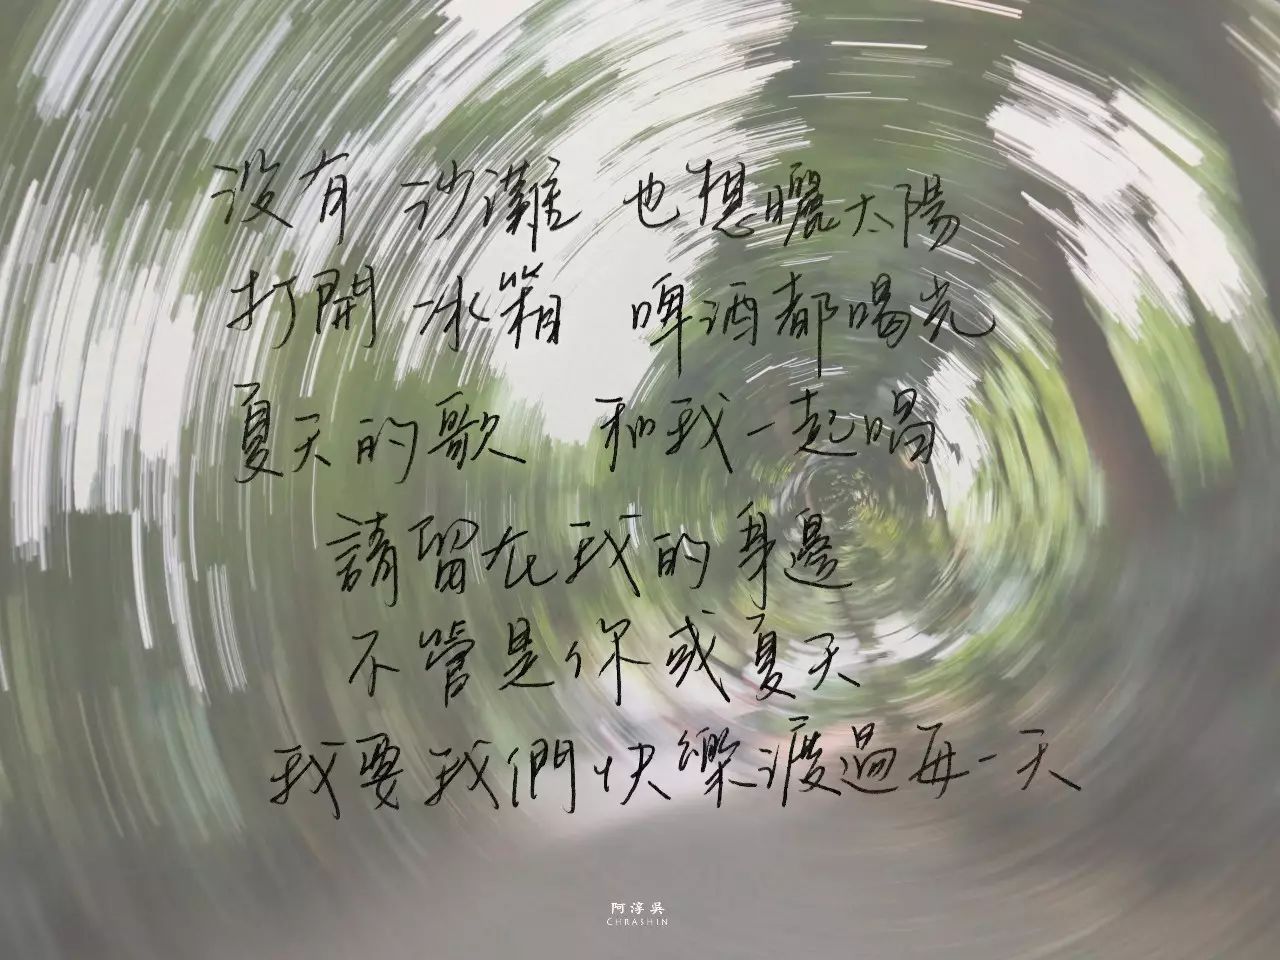 没有 沙灘 也想曬太陽
打開 冰箱 啤酒都喝光
夏天的歌 和我一起唱
請留在我的身邊
不管是你或夏天
我要我們快樂渡過每一天
阿淳吳
CHRASHIN